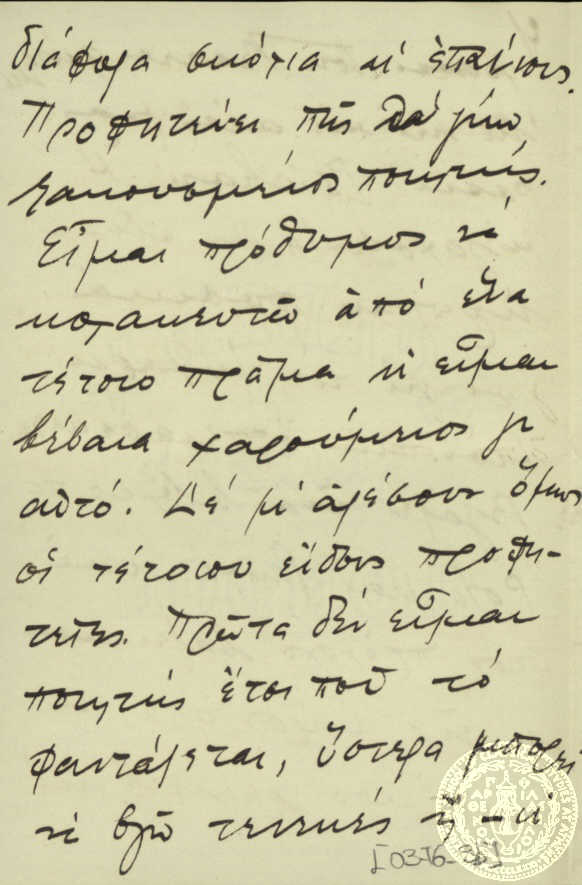 διάφορα σκόλια κι ἐπαίνους.
Προφητεύει πῶς θὰ γίνω
ξακουσμένος ποιητής.
Εἶμαι πρόθυμος νὰ
κολακευτῶ ἀπό ἕνα
τέτοιο πρᾶμα κι εἶμαι
βέβαια χαρούμενος γι
αὐτό. Δέ μ' ἀρέσουν ὅμως
οἱ τέτοιου εἴδους προφη-
τεῖες. Πρῶτα δέν εἶμαι
ποιητής ἔτσι ποῦ τό
φαντάζεται, ὕστερα μπορεῖ
νὰ βγῶ τενεκές ἤ – κι'
[03-16-35]